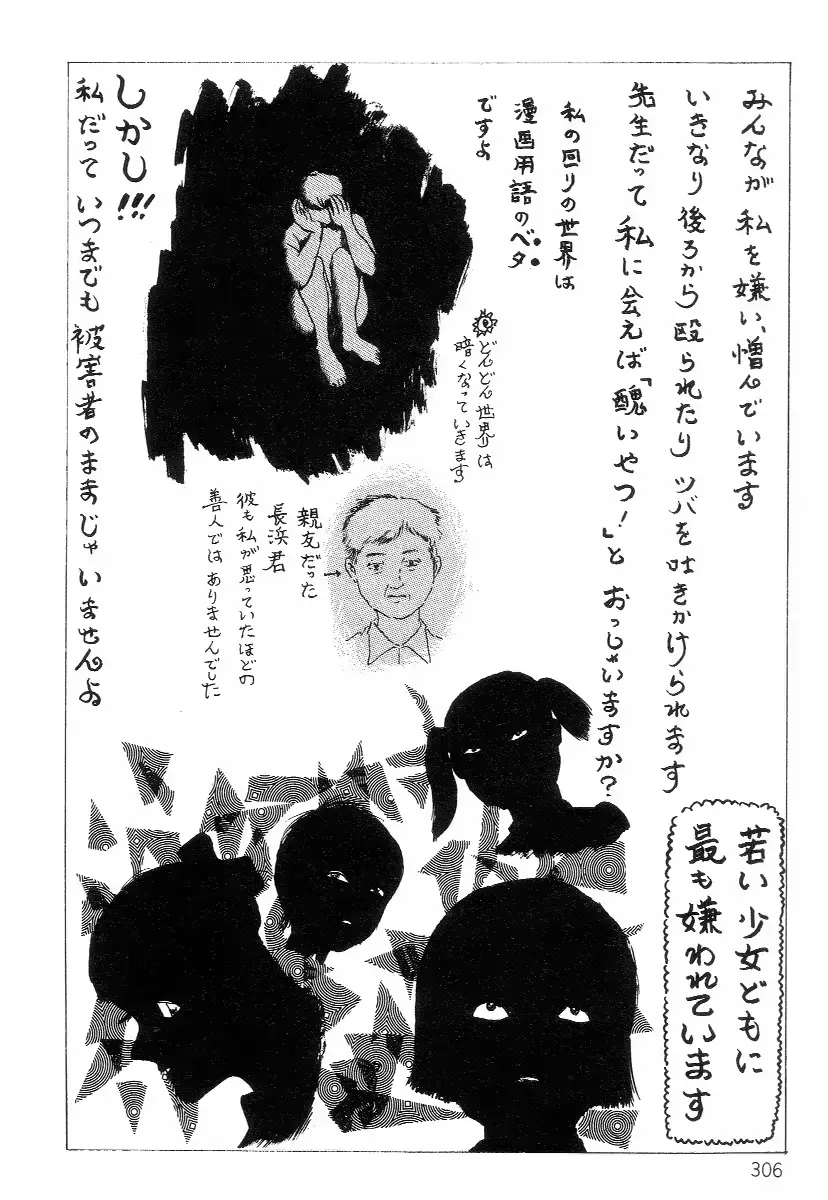 みんなが私を嫌い、憎んでいます
いきなり後ろから殴られたりツバを吐きかけられます
先生だって私に会えば「醜いやつ!」とおっしゃいますか?
若い少女どもに
最も嫌われています
私の回りの世界は
漫画用語のベタ
ですよ
どんどん世界は
暗くなっていきます
親友だった
長浜君
彼も私が思っていたほどの
善人ではありませんでした
しかし!!!
私だっていつまでも被害者のままじゃいませんよ
306